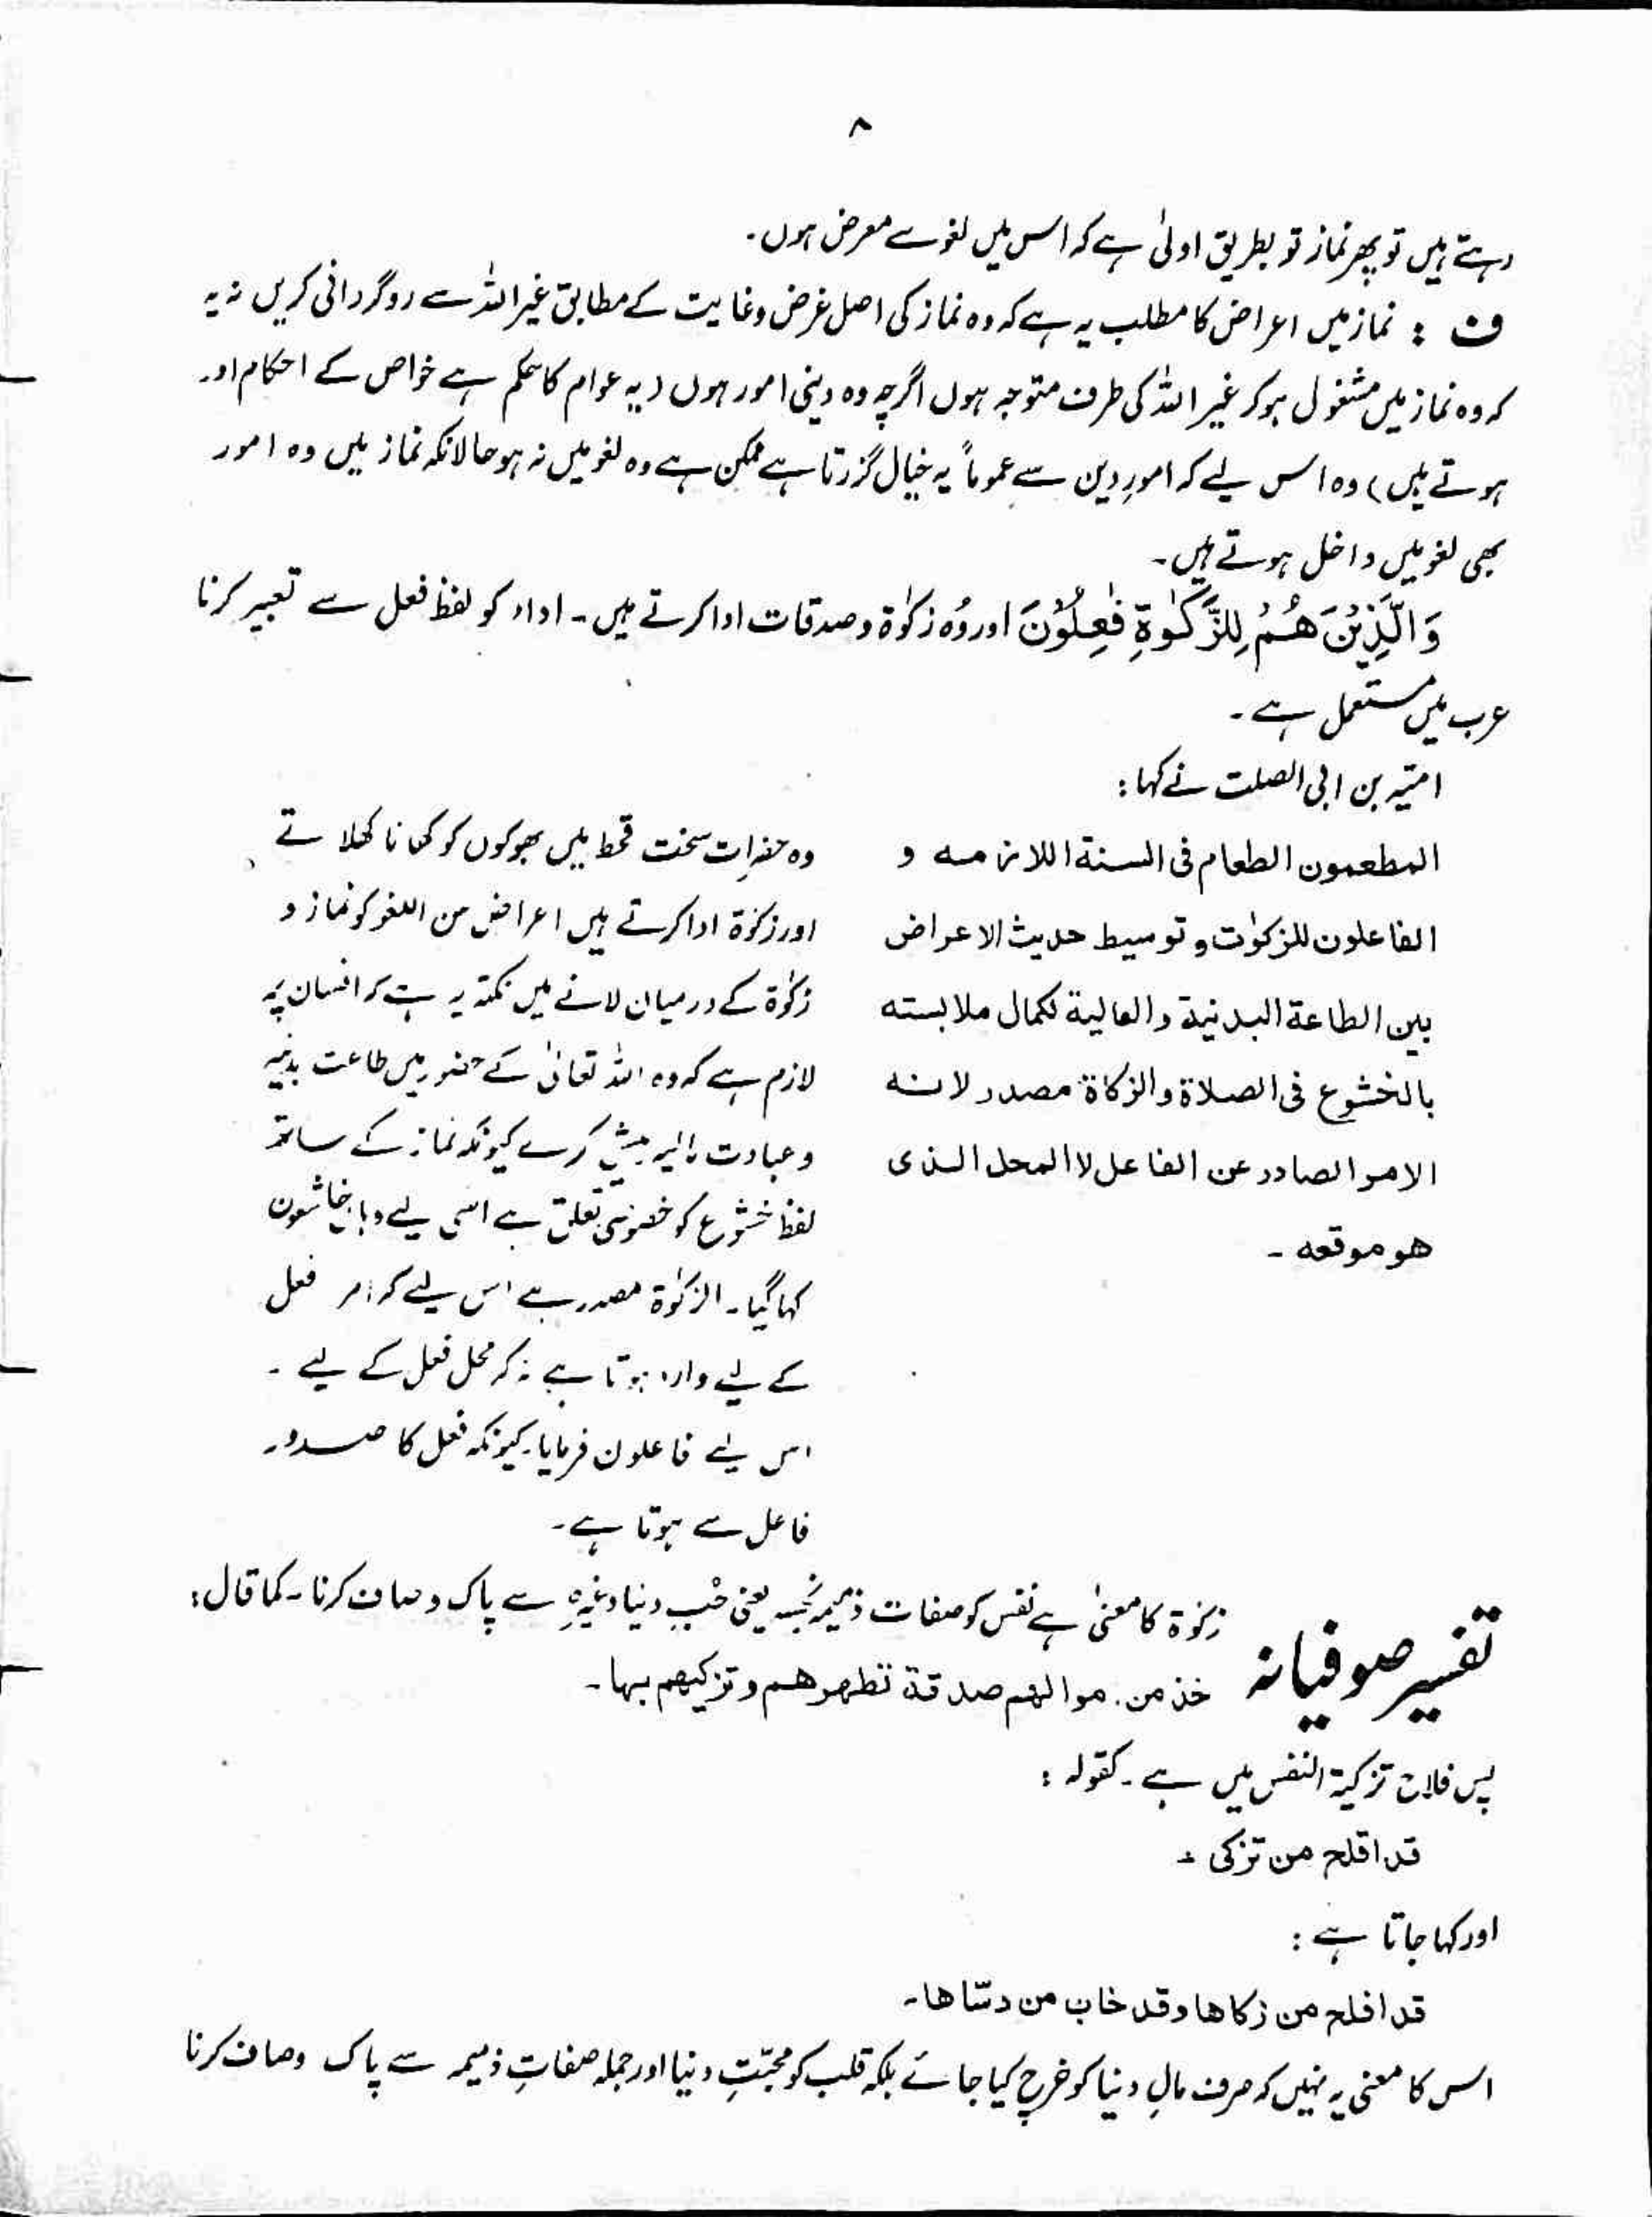 ۸
رہتے ہیں تو پھر نماز تو بطریق اولیٰ ہے کہ اس میں لغو سے معرض ہوں۔
ف : نماز میں اعراض کا مطلب یہ ہے کہ وہ نماز کی اصل غرض و غایت کے مطابق غیر اللہ سے روگردانی کریں نہ یہ
کہ وہ نماز میں مشغول ہو کر غیر اللہ کی طرف متوجہ ہوں اگرچہ وہ دینی امور ہوں (یہ عوام کا حکم ہے خواص کے احکام اور
ہوتے ہیں) وہ اس لیے کہ امورِ دین سے عموماً یہ خیال گزرتا ہے ممکن ہے وہ لغو میں نہ ہو حالانکہ نماز میں وہ امور
بھی لغو میں داخل ہوتے ہیں۔
وَالَّذِیْنَ ھُمْ لِلزَّکٰوۃِ فٰعِلُوْنَ اور وُہ زکوٰۃ و صدقات ادا کرتے ہیں۔ اداء کو لفظ فعل سے تعبیر کرنا
عرب میں مستعمل ہے۔
امیّہ بن ابی الصلت نے کہا:
المطعمون الطعام فی السنۃ اللازمہ و
الفاعلون للزکوٰت و توسیط حدیث الاعراض
بین الطاعۃ البدنیۃ والمالیۃ لکمال ملابستہ
بالخشوع فی الصلاۃ والزکاۃ مصدر لانہ
الامر الصادر عن الفاعل لا المحل الذی
ھو موقعہ ۔
وہ حضرات سخت قحط میں بھوکوں کو کھانا کھلاتے
اور زکوٰۃ ادا کرتے ہیں اعراض من اللغو کو نماز و
زکوٰۃ کے درمیان لانے میں نکتہ یہ ہے کہ انسان پر
لازم ہے کہ وہ اللہ تعالیٰ کے حضور میں طاعت بدنیہ
و عبادت مالیہ پیش کرے کیونکہ نماز کے ساتھ
لفظ خشوع کو خصوصی تعلق ہے اسی لیے وہاں خاشعون
کہا گیا۔ الزکوٰۃ مصدر ہے اس لیے کہ امر فعل
کے لیے وارد ہوتا ہے نہ کہ محل فعل کے لیے ۔
اس لیے فاعلون فرمایا۔ کیونکہ فعل کا صدور
فاعل سے ہوتا ہے۔
تفسیر صوفیانہ زکوٰۃ کا معنیٰ ہے نفس کو صفات ذمیمہ نجسہ یعنی حُبِ دنیا وغیرہ سے پاک و صاف کرنا۔ کما قال:
خذ من اموالھم صدقۃ تطھرھم و تزکیھم بہا۔
پس فلاح تزکیۃ النفس میں ہے۔ کقولہ :
قد افلح من تزکی ۔
اور کہا جاتا ہے :
قد افلح من زکاھا وقد خاب من دسّاھا۔
اس کا معنی یہ نہیں کہ صرف مالِ دنیا کو خرچ کیا جائے بلکہ قلب کو محبّتِ دنیا اور جملہ صفاتِ ذمیمہ سے پاک وصاف کرنا